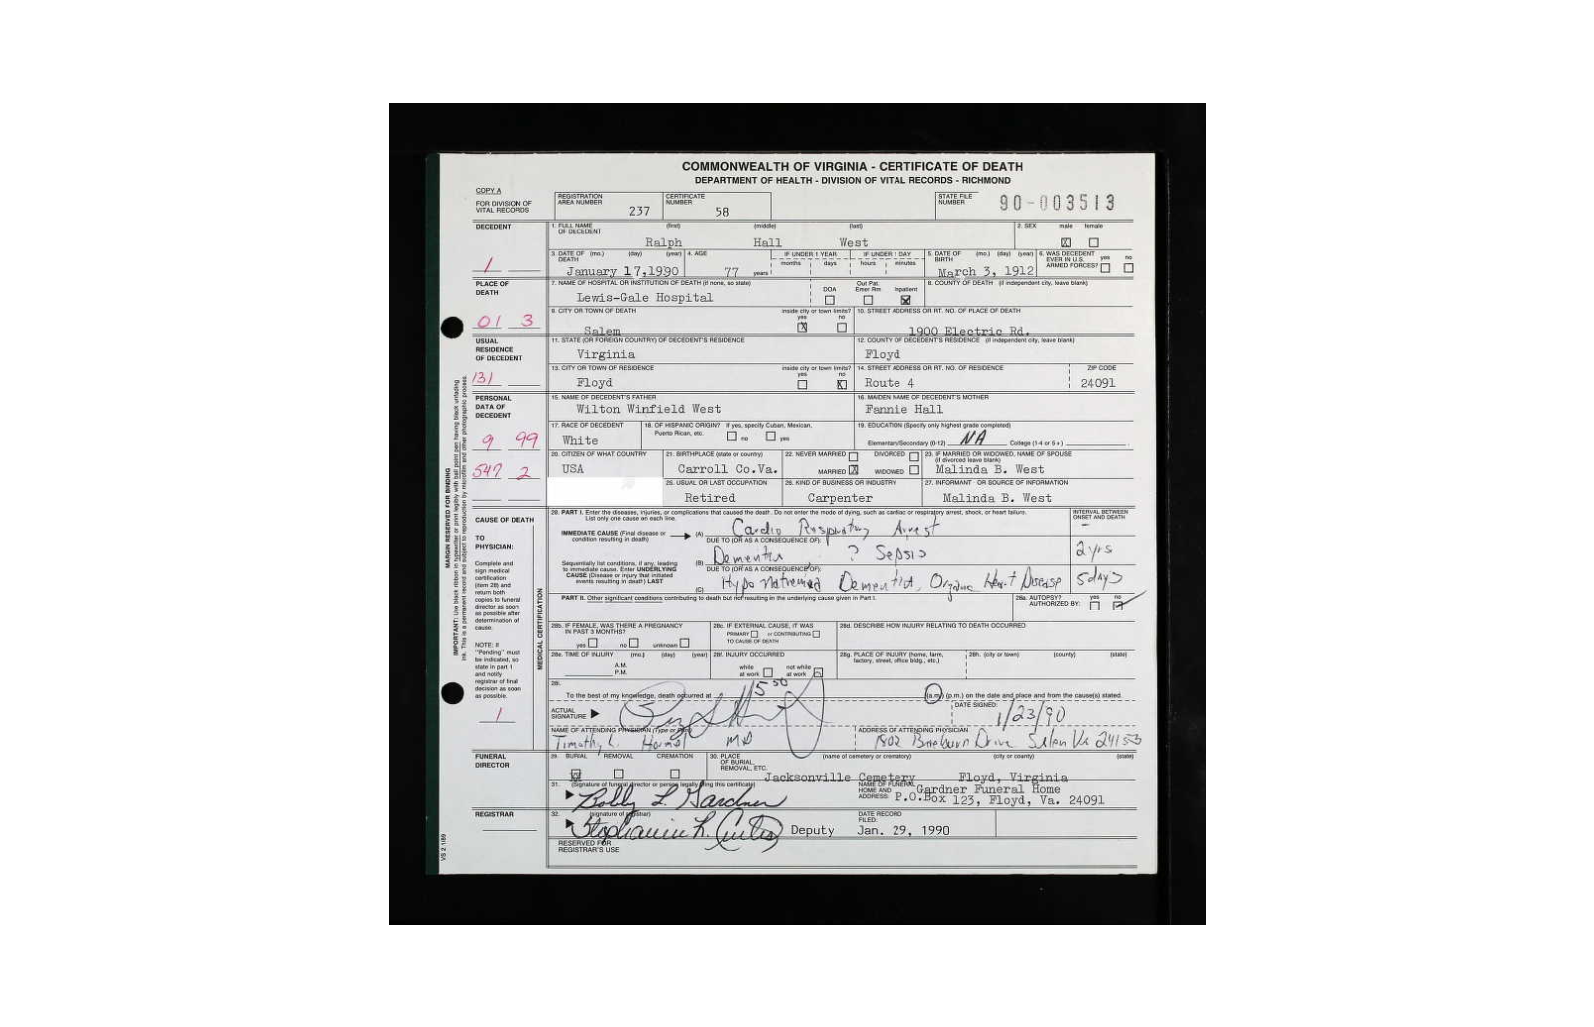 COMMONWEALTH OF VIRGINIA - CERTIFICATE OF DEATH
DEPARTMENT OF HEALTH - DIVISION OF VITAL RECORDS - RICHMOND
COPY A
FOR DIVISION OF VITAL RECORDS
REGISTRATION AREA NUMBER 237
CERTIFICATE NUMBER 58
STATE FILE NUMBER 90-003513
DECEDENT
1. FULL NAME OF DECEDENT (first) (middle) (last)
Ralph Hall West
2. SEX male female
X
3. DATE OF DEATH (mo.) (day) (year)
January 17,1990
4. AGE 77 years
IF UNDER 1 YEAR months days
IF UNDER 1 DAY hours minutes
5. DATE OF BIRTH (mo.) (day) (year)
March 3, 1912
6. WAS DECEDENT EVER IN U.S. ARMED FORCES? yes no
1
PLACE OF DEATH
7. NAME OF HOSPITAL OR INSTITUTION OF DEATH (if none, so state)
Lewis-Gale Hospital
DOA Out Pat. Emer Rm Inpatient
X
8. COUNTY OF DEATH (if independent city, leave blank)
01 3
9. CITY OR TOWN OF DEATH
Salem
inside city or town limits? yes no
X
10. STREET ADDRESS OR RT. NO. OF PLACE OF DEATH
1900 Electric Rd.
USUAL RESIDENCE OF DECEDENT
11. STATE (OR FOREIGN COUNTRY) OF DECEDENT'S RESIDENCE
Virginia
12. COUNTY OF DECEDENT'S RESIDENCE (if independent city, leave blank)
Floyd
131
13. CITY OR TOWN OF RESIDENCE
Floyd
inside city or town limits? yes no
X
14. STREET ADDRESS OR RT. NO. OF RESIDENCE
Route 4
ZIP CODE
24091
PERSONAL DATA OF DECEDENT
15. NAME OF DECEDENT'S FATHER
Wilton Winfield West
16. MAIDEN NAME OF DECEDENT'S MOTHER
Fannie Hall
9 99
17. RACE OF DECEDENT
White
18. OF HISPANIC ORIGIN? If yes, specify Cuban, Mexican, Puerto Rican, etc. no yes
19. EDUCATION (Specify only highest grade completed)
Elementary/Secondary (0-12) NA College (1-4 or 5+)
547 2
20. CITIZEN OF WHAT COUNTRY
USA
21. BIRTHPLACE (state or country)
Carroll Co.Va.
22. NEVER MARRIED DIVORCED
MARRIED X WIDOWED
23. IF MARRIED OR WIDOWED, NAME OF SPOUSE (if divorced leave blank)
Malinda B. West
25. USUAL OR LAST OCCUPATION
Retired
26. KIND OF BUSINESS OR INDUSTRY
Carpenter
27. INFORMANT OR SOURCE OF INFORMATION
Malinda B. West
CAUSE OF DEATH
TO PHYSICIAN:
Complete and sign medical certification (item 28) and return both copies to funeral director as soon as possible after determination of cause.
NOTE: If "Pending" must be indicated, so state in part 1 and notify registrar of final decision as soon as possible.
1
MEDICAL CERTIFICATION
28. PART I. Enter the diseases, injuries, or complications that caused the death. Do not enter the mode of dying, such as cardiac or respiratory arrest, shock, or heart failure.
List only one cause on each line.
INTERVAL BETWEEN ONSET AND DEATH
IMMEDIATE CAUSE (Final disease or condition resulting in death)
(A) Cardio Respiratory Arrest
DUE TO (OR AS A CONSEQUENCE OF):
(B) Dementia ? Sepsis 2 yrs
Sequentially list conditions, if any, leading to immediate cause. Enter UNDERLYING CAUSE (Disease or injury that initiated events resulting in death) LAST
DUE TO (OR AS A CONSEQUENCE OF):
(C) Organic Heart Disease 5 days
PART II. Other significant conditions contributing to death but not resulting in the underlying cause given in Part I.
28a. AUTOPSY? AUTHORIZED BY: yes no
28b. IF FEMALE, WAS THERE A PREGNANCY IN PAST 3 MONTHS?
yes no unknown
28c. IF EXTERNAL CAUSE, IT WAS
PRIMARY or CONTRIBUTING
TO CAUSE OF DEATH
28d. DESCRIBE HOW INJURY RELATING TO DEATH OCCURRED
28e. TIME OF INJURY (mo.) (day) (year)
A.M.
P.M.
28f. INJURY OCCURRED
while at work not while at work
28g. PLACE OF INJURY (home, farm, factory, street, office bldg., etc.)
28h. (city or town) (county) (state)
28i.
To the best of my knowledge, death occurred at 550 (a.m.) (p.m.) on the date and place and from the cause(s) stated.
ACTUAL SIGNATURE
DATE SIGNED:
1/23/90
NAME OF ATTENDING PHYSICIAN (Type or Print)
Timothy L. Hormel MD
ADDRESS OF ATTENDING PHYSICIAN
1802 Braeburn Drive Salem Va 24153
FUNERAL DIRECTOR
29. BURIAL REMOVAL CREMATION
X
30. PLACE OF BURIAL, REMOVAL, ETC.
(name of cemetery or crematory) (city or county) (state)
Jacksonville Cemetery Floyd, Virginia
31. (signature of funeral director or person legally filing this certificate)
Bobby L. Gardner
NAME OF FUNERAL HOME AND ADDRESS:
Gardner Funeral Home
P.O.Box 123, Floyd, Va. 24091
REGISTRAR
32. (signature of registrar)
Stephanie L. Curtis Deputy
DATE RECORD FILED:
Jan. 29, 1990
RESERVED FOR REGISTRAR'S USE
VS 2 1/89
MARGIN RESERVED FOR BINDING
IMPORTANT: Use black ribbon in typewriter or print legibly with ball point pen having black unfading ink. This is a permanent record and subject to reproduction by microfilm and other photographic process.